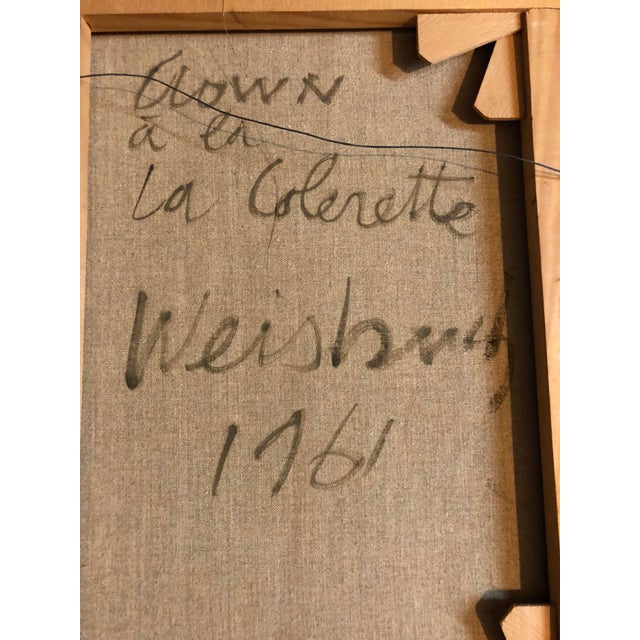 Clown
à la
La Colerette
Weisbuch
1961